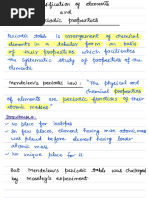 Classification of elements
and
Periodic properties
Periodic table is arrangement of chemical
elements in a tabular form on basis
of their properties which facilitates
the systematic study of properties of the
elements.
Mendeleev's periodic law: "The physical and
chemical properties
of elements are periodic functions of their
atomic masses"
• No place for isotopes
• In few places, element having atomic mass
was placed before element having lower
atomic mass.
• No unique place for H
But Mendeleev's periodic table was changed
by Moseley's experiment